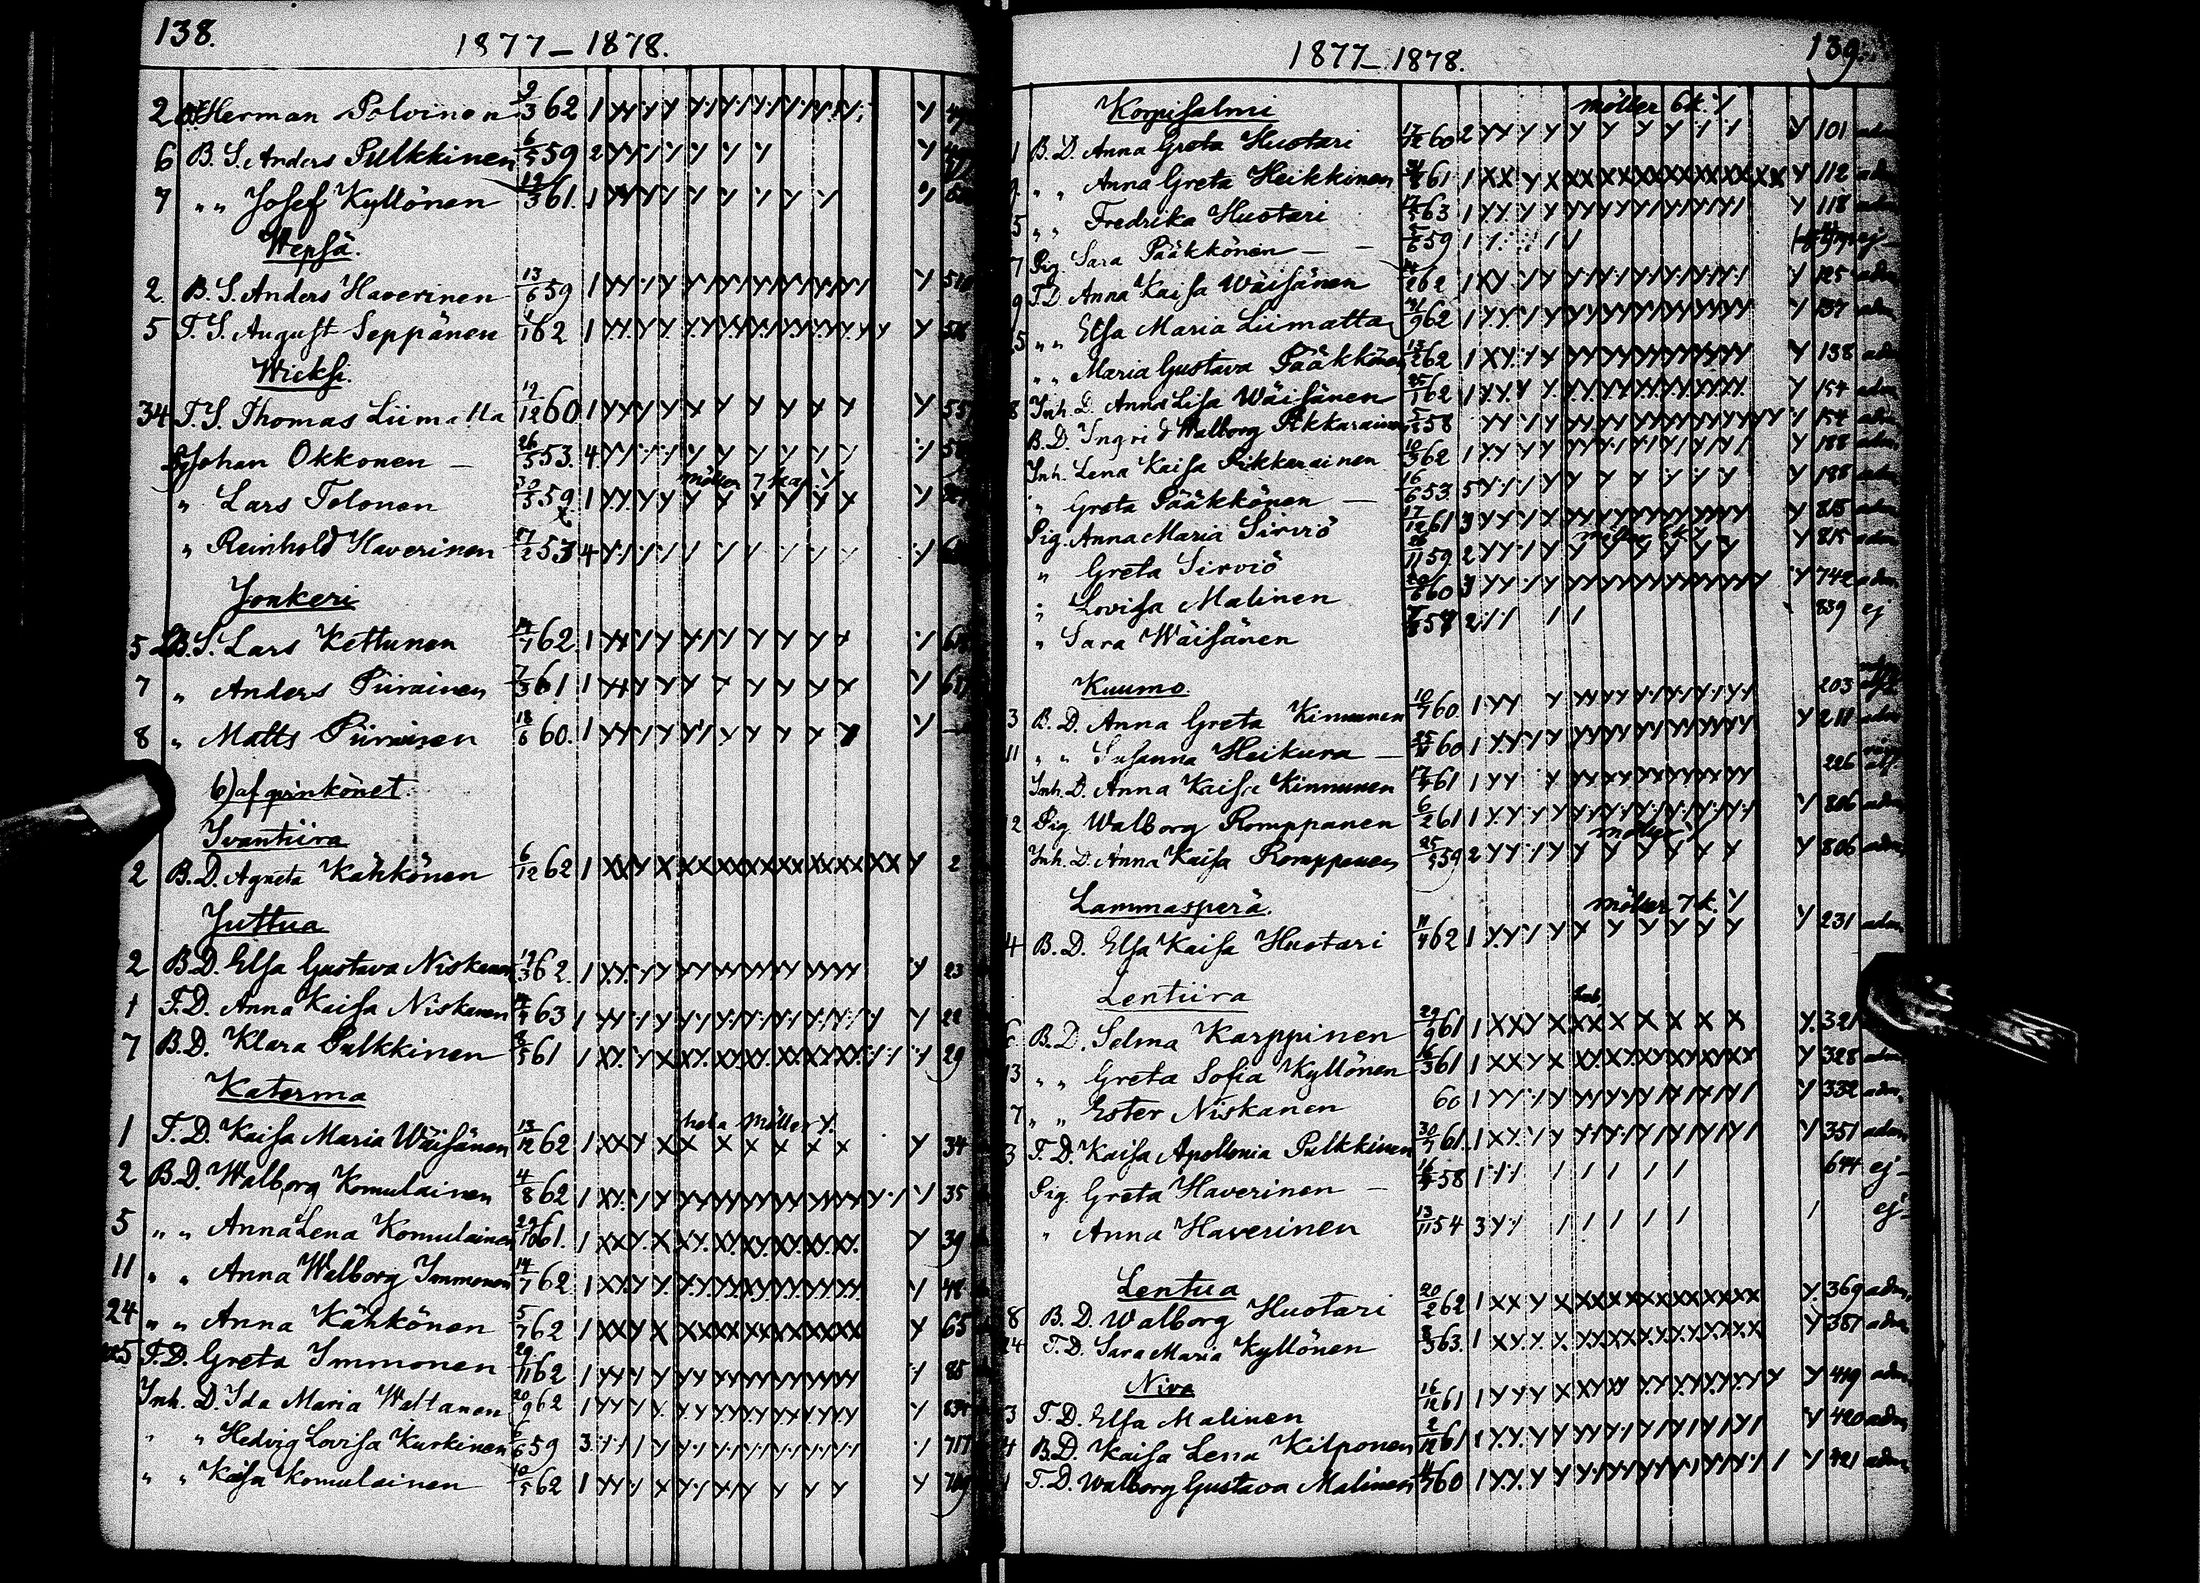 138.
1877–1878.
2 Herman Polvinen 9/3 62 1
6 B. S. Anders Pulkkinen 6/5 59 2
7 „ „ Josef Kyllönen 19/3 61. 1
Wepsä.
2. B. S. Anders Haverinen 13/6 59 1
5 T. S. August Seppänen 62 1
Wieksi.
34 T. S. Thomas Liimatta 19/12 60. 1
Johan Okkonen – 26/5 53. 4
möller 7 kap.
„ Lars Tolonen 59 1
„ Reinhold Haverinen 17/2 53 4
Jonkeri
5 B. S. Lars Kettunen 14/7 62. 1
7 „ Anders Piirainen 7/3 61 1
8 „ Matts Piirainen 18/6 60. 1
b) af qvinkönet.
Ivantiira
2 B. D. Agneta Kähkönen 6/12 62 1 2
Juttua
2 B. D. Elsa Gustava Niskanen 19/3 62. 1 23
1 T. D. Anna Kaisa Niskanen 63 1 22
7 B. D. Klara Pulkkinen 61 1 29
Katerma
hela Möller
1 T. D. Kaisa Maria Wäisänen 13/12 62 1 34
2 B. D. Walborg Komulainen 4/8 62 1 35
5 „ „ Anna Lena Komulainen 29/10 61. 1 39
11 „ „ Anna Walborg Immonen 14/7 62 1 48
24 „ „ Anna Kähkönen 5/7 62 1 65
25 T. D. Greta Immonen 29/11 62 1 85
Inh. D. Ida Maria Wattanen 20/9 62 1
„ „ Hedvig Lovisa Kurkinen 59 3 717
„ „ Kaisa Komulainen 10/5 62 1 719
1877–1878. 139.
Korpisalmi möller 6 k.
1 B. D. Anna Greta Huotari 17/12 60 2 101 adm.
„ „ Anna Greta Heikkinen 61 1 112 adm.
5 „ „ Fredrika Huotari 63 1 118
7 Pig. Sara Pääkkönen – 5/6 59 1 ej
9 T. D. Anna Kaisa Wäisänen 14/2 62 1 125 adm.
„ „ Elsa Maria Liimatta 62 1 137 adm.
„ „ Maria Gustava Pääkkönen 13/2 62 1 138 adm.
8 Inh. D. Anna Lisa Wäisänen 25/1 62 1 154 adm.
B. D. Ingrid Walborg Pikkarainen 58 154 adm.
Inh. Lena Kaisa Pikkarainen 10/3 62 1 188 adm.
„ Greta Pääkkönen – 16/6 53. 5 198 adm.
Pig. Anna Maria Sirviö 17/12 61 3 815 adm.
möller 6 k
„ Greta Sirviö 26/11 59 2 815 adm.
„ Lovisa Malinen 60 3 742 adm.
„ Sara Wäisänen 58 2 839 ej
Kuumo.
3 B. D. Anna Greta Kinnunen 10/7 60 1 203
11 „ „ Susanna Heikura – 60 1 211 adm.
Inh. D. Anna Kaisa Kinnunen 61 1 226
12 Pig Walborg Romppanen 6/2 61 1 806 adm.
möller
Inh. D. Anna Kaisa Romppanen 25/5 59 2 806 adm.
Lammasperä. möller 7 k.
4 B. D. Elsa Kaisa Huotari 11/4 62 1 231 adm.
Lentiira
6 B. D. Selma Karppinen 29/9 61 1 321
13 „ „ Greta Sofia Kyllönen 16/3 61 1 328 adm.
7 „ „ Ester Niskanen 60 1 332 adm.
3 T. D. Kaisa Apollonia Pulkkinen 30/7 61. 1 351 adm.
Pig. Greta Haverinen – 58 1 644 ej
„ Anna Haverinen 13/11 54 3 ej
Lentua
8 B. D. Walborg Huotari 20/2 62 1 369 adm.
24 T. D. Sara Maria Kyllönen 63. 1 387 adm.
Niva
3 T. D. Elsa Malinen 16/12 61 1 419 adm.
4 B. D. Kaisa Lena Kilponen 2/12 61 1 420 adm.
T. D. Walborg Gustava Malinen 60 1 421 adm.